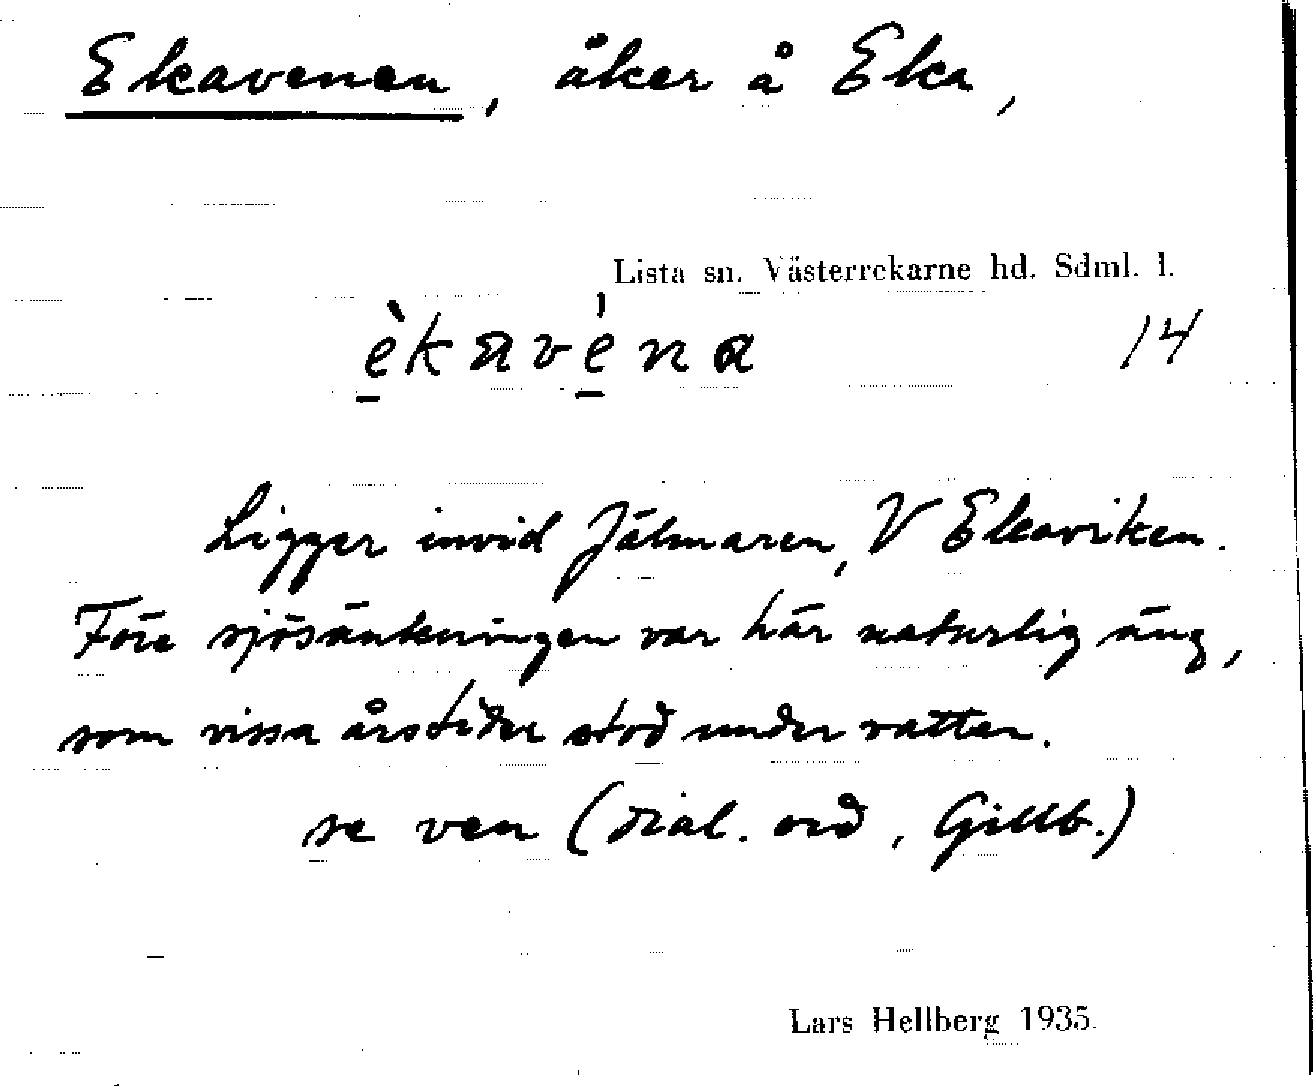 Ekavenen, åker å Eka,
Lista sn. Västerrekarne hd. Sdml. l.
èkavéna 14
Ligger invid Jälmaren, V Ekaviken.
Före sjösänkningen var här naturlig äng,
som vissa årstider stod under vatten.
se ven (dial. ord, Gillb.)
Lars Hellberg 1935.